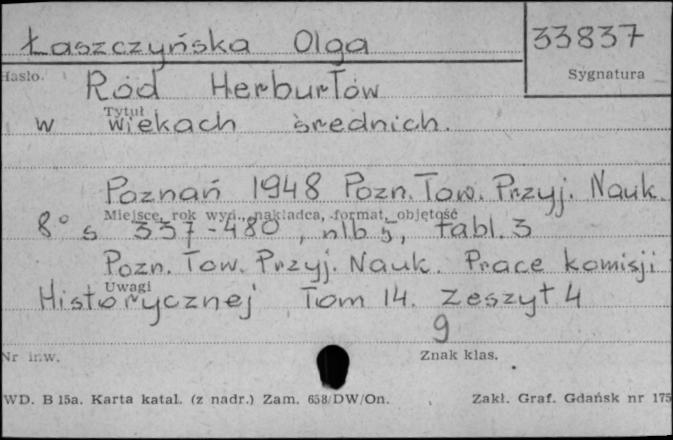 Łaszczyńska Olga 33837
Hasło. Sygnatura
Ród Herburtów
Tytuł
w wiekach średnich.
Poznań 1948 Pozn. Tow. Przyj. Nauk.
Miejsce, rok wyd., nakładca, format, objętość
8° s 337-480, nlb 5, tabl. 3
Pozn. Tow. Przyj. Nauk. Prace komisji
Uwagi
Historycznej Tom 14. Zeszyt 4
9
Nr inw. Znak klas.
WD. B 15a. Karta katal. (z nadr.) Zam. 658/DW/On. Zakł. Graf. Gdańsk nr 175